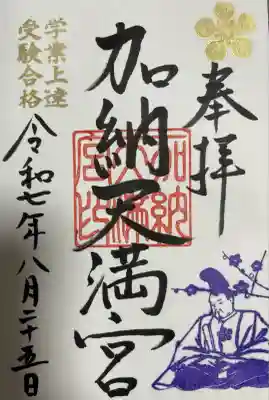 奉拝
加納天満宮
加納天満宮印
学業上達
受験合格
令和七年八月二十五日